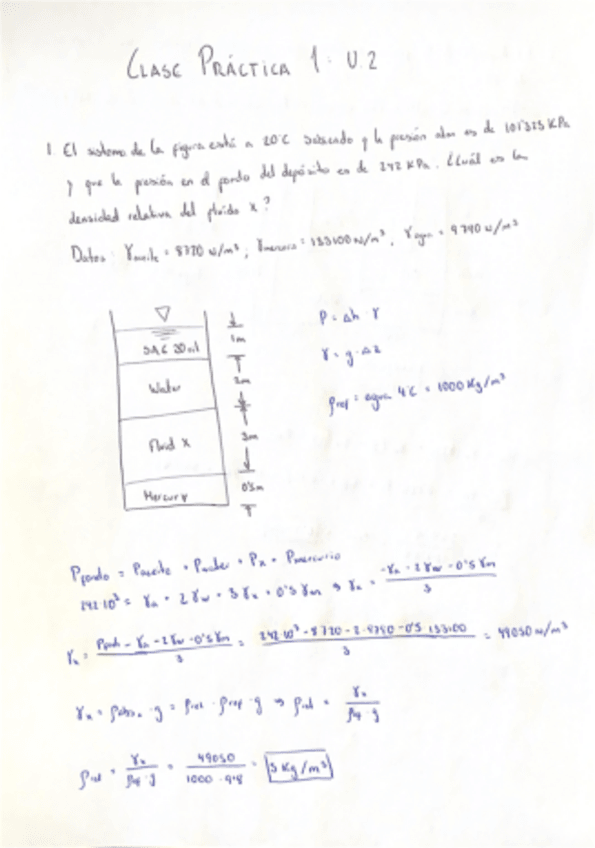 CLASE PRÁCTICA 1: U.2
1 El sistema de la figura está a 20ºC sabiendo q la presión atm es de 101'325 KPa
y que la presión en el fondo del depósito es de 242 KPa. ¿Cuál es la
densidad relativa del fluido x?
Datos: γaceite = 8720 N/m³; γmercurio = 133100 N/m³, γagua = 9790 N/m³
SAE 30 oil
Water
Fluid X
Mercury
1m
2m
3m
0'5m
P = Δh · γ
γ = g · Δz
ρref = agua 4ºC = 1000 Kg/m³
Pfondo = Paceite + Pwater + Px + Pmercurio
242·10³ = γa + 2γw + 3γx + 0'5γm ⇒ γx = -γa - 2γw - 0'5γm / 3
γx = Pfondo - γa - 2γw - 0'5γm / 3 = 242·10³ - 8720 - 2·9790 - 0'5·133100 / 3 = 49050 N/m³
γx = · g = ρrel · ρref · g ⇒ ρrel = γx / ρref · g
ρrel = γx / ρref · g = 49050 / 1000 · 9'8 = 5 Kg/m³